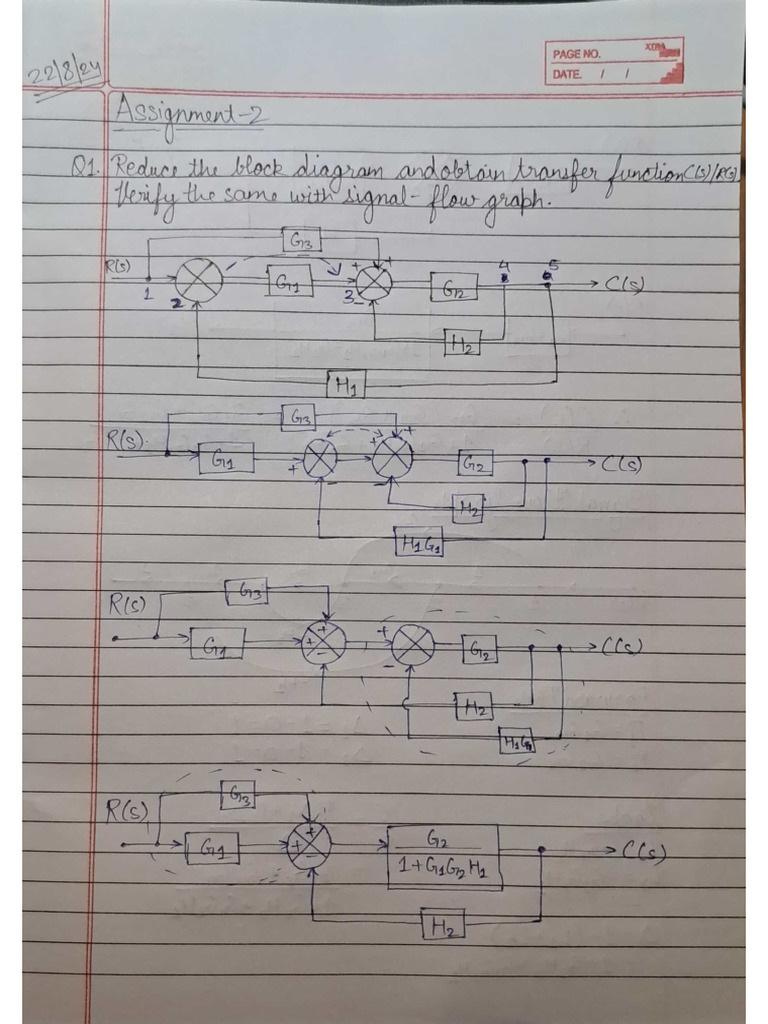 22/8/24
XDRA
PAGE NO.
DATE. / /
Assignment-2
Q1. Reduce the block diagram and obtain transfer function C(s)/R(s)
Verify the same with signal-flow graph.
G3
R(s) + + 4 5
G1 G2 C(s)
1 2 3 -
-
H2
H1
G3
R(s) + +
G1 + G2 C(s)
- -
H2
H1G1
R(s) G3
+ +
G1 + - G2 C(s)
-
H2
H1G1
R(s) G3
+
G1 + G2 C(s)
- 1+G1G2H1
H2